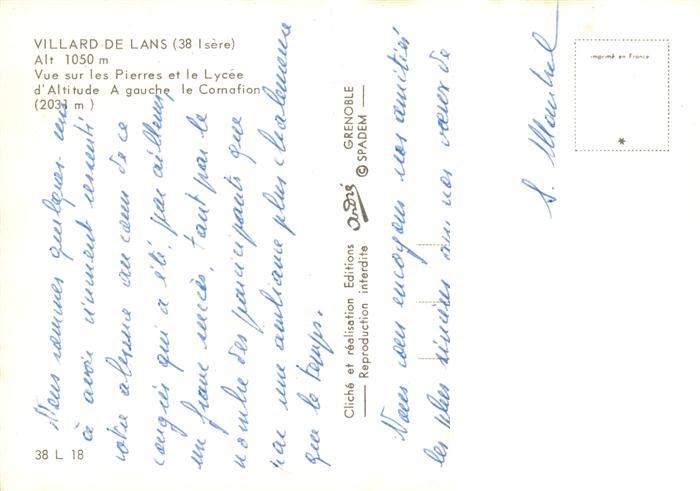 VILLARD DE LANS (38 Isère)
Alt 1050 m
Vue sur les Pierres et le Lycée
d'Altitude A gauche le Cornafion
(2031 m)
Nous sommes quelques-uns
à avoir vivement ressenti
votre absence au cours de ce
congrès qui a été, par ailleurs,
un franc succès, tant par le
nombre des participants que
par une ambiance plus chaleureuse
que le temps.
38 L 18
Cliché et réalisation Editions André GRENOBLE
Reproduction interdite © SPADEM
Nous vous envoyons nos amitiés
les plus sincères avec nos vœux de
S.
imprimé en France
*